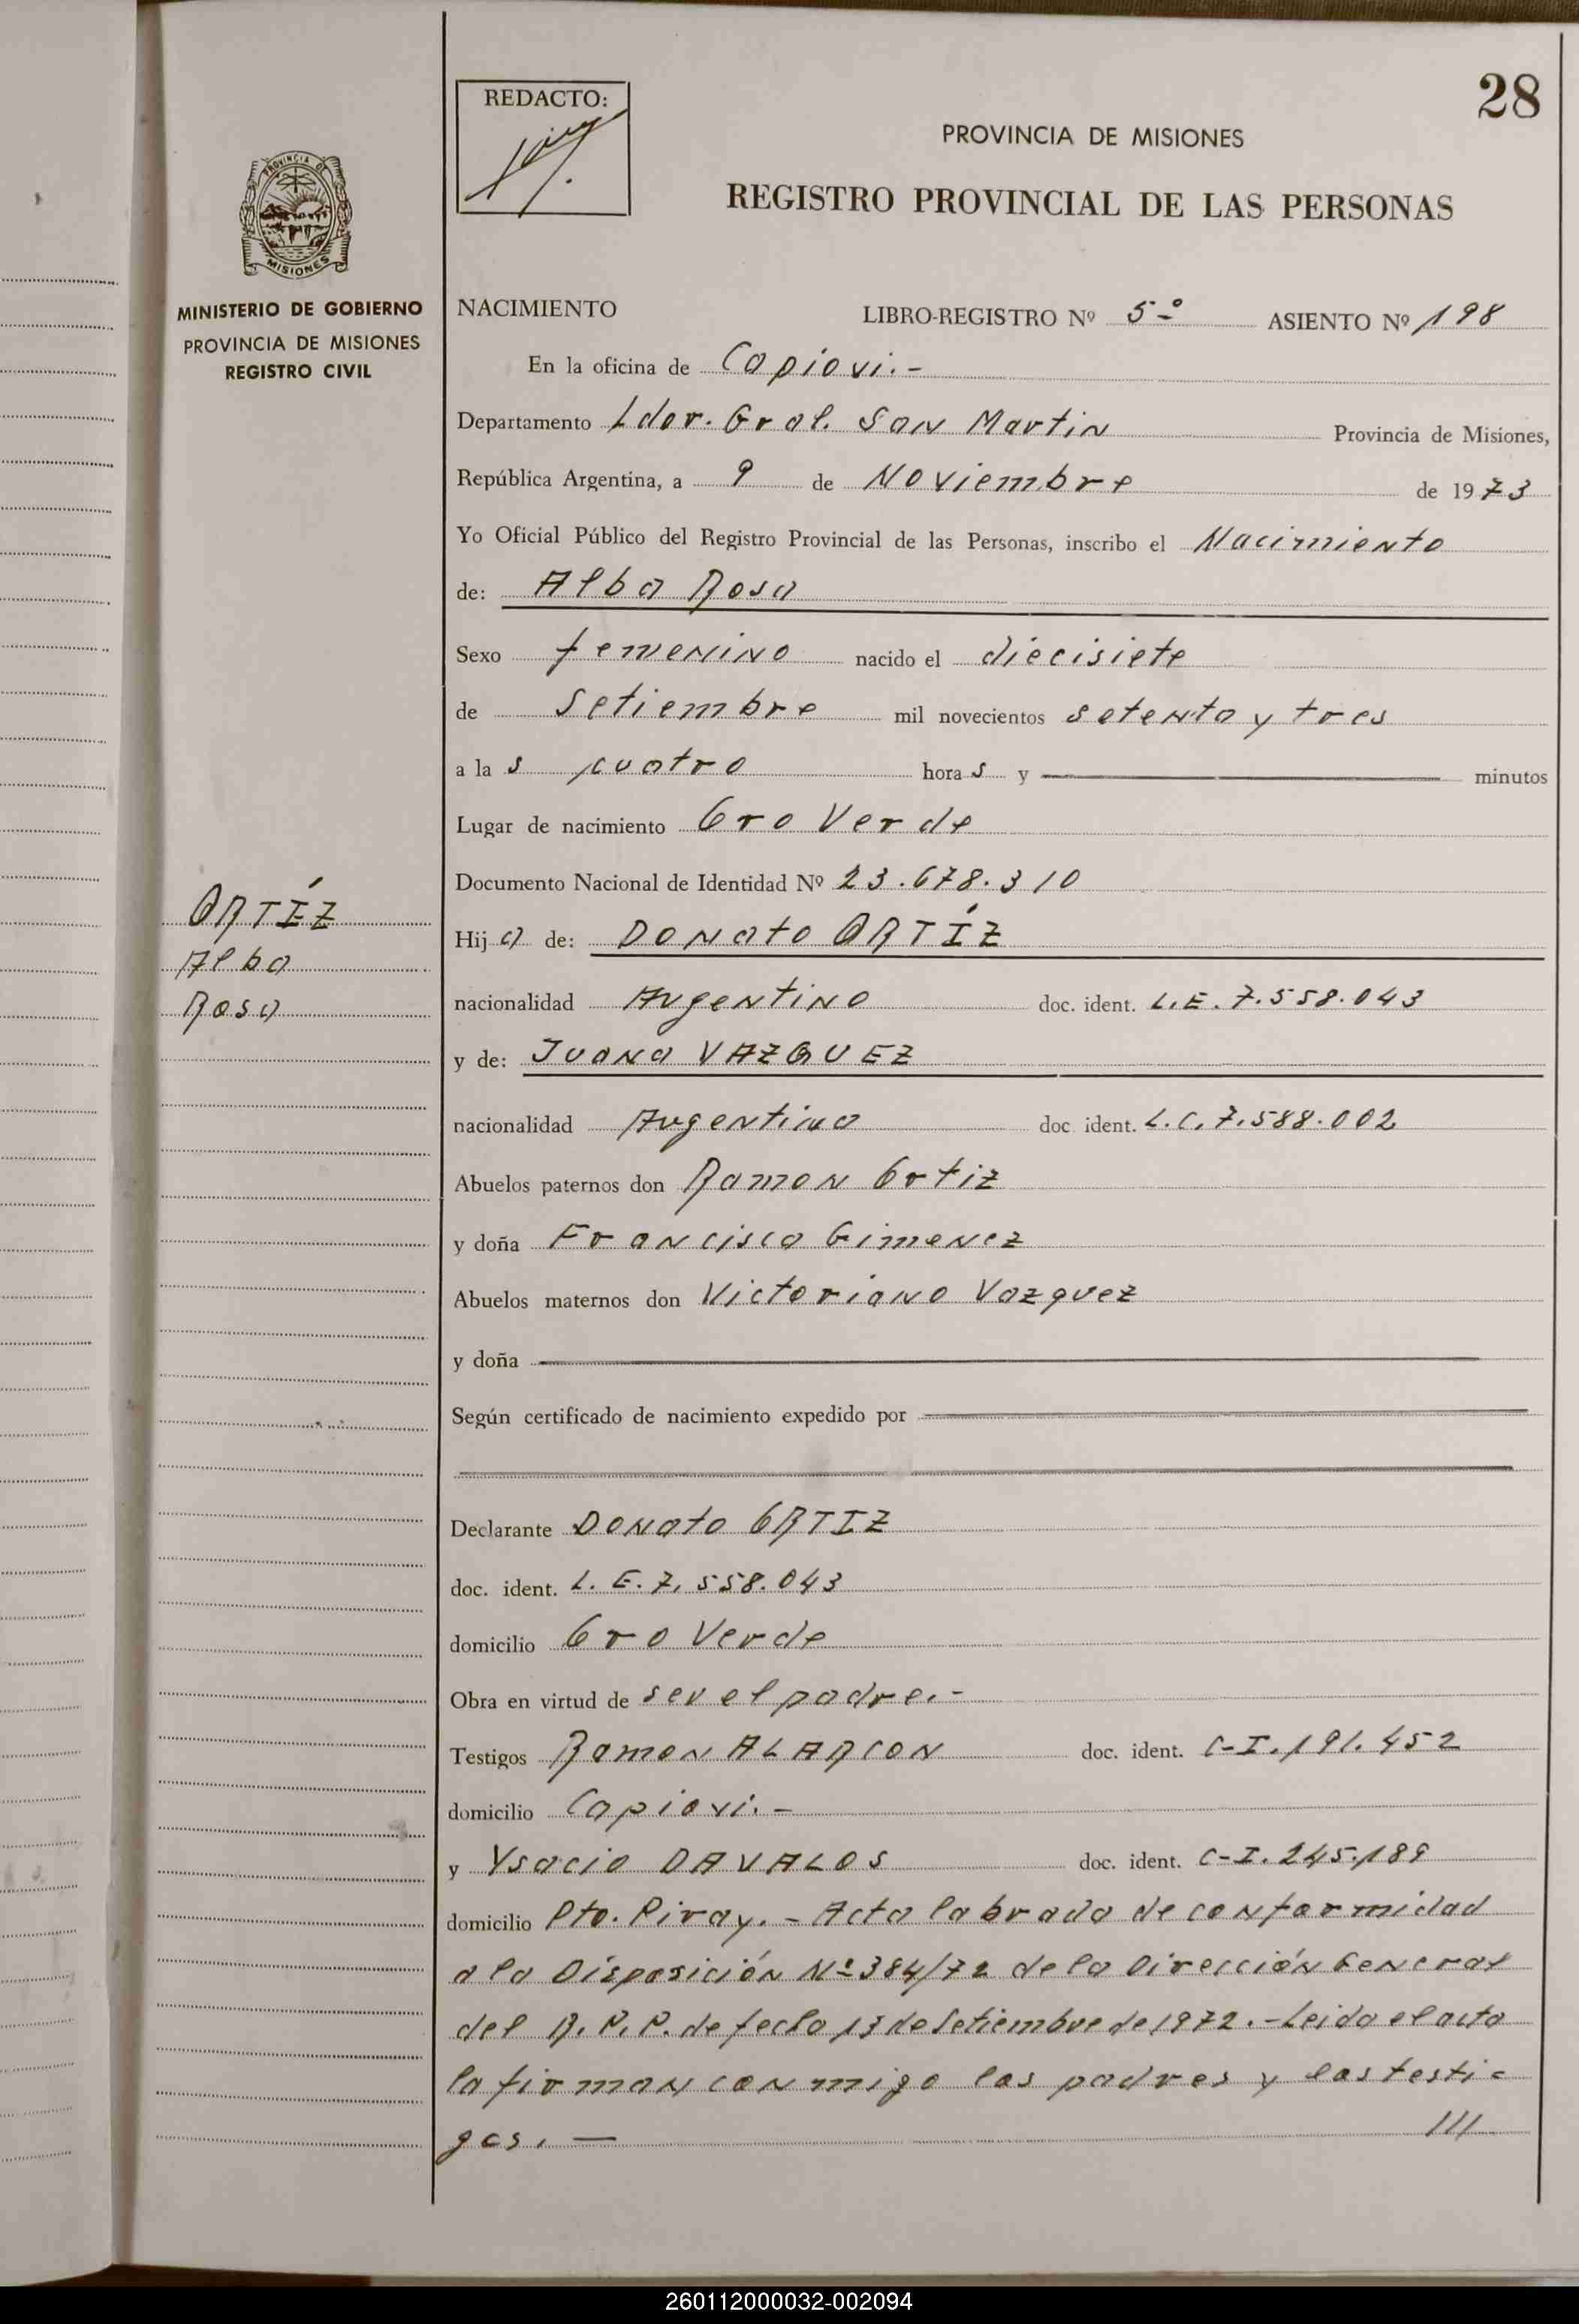 28
REDACTO:
PROVINCIA DE MISIONES
REGISTRO PROVINCIAL DE LAS PERSONAS
PROVINCIA DE
MISIONES
MINISTERIO DE GOBIERNO
PROVINCIA DE MISIONES
REGISTRO CIVIL
NACIMIENTO LIBRO-REGISTRO Nº 5º ASIENTO Nº 198
En la oficina de Capiovi.-
Departamento Ldor. Gral. San Martin Provincia de Misiones,
República Argentina, a 9 de Noviembre de 1973
Yo Oficial Público del Registro Provincial de las Personas, inscribo el Nacimiento
de: Alba Rosa
Sexo femenino nacido el diecisiete
de Setiembre mil novecientos setenta y tres
a las cuatro horas y ——— minutos
Lugar de nacimiento Oro Verde
Documento Nacional de Identidad Nº 23.678.310
ORTÍZ
Alba
Rosa
Hija de: Donato ORTÍZ
nacionalidad Argentino doc. ident. L.E. 7.558.043
y de: Juana VAZQUEZ
nacionalidad Argentina doc. ident. L.C. 7.588.002
Abuelos paternos don Ramon Ortiz
y doña Francisca Gimenez
Abuelos maternos don Victoriano Vazquez
y doña ———
Según certificado de nacimiento expedido por ———
Declarante Donato ORTIZ
doc. ident. L.E. 7.558.043
domicilio Oro Verde
Obra en virtud de ser el padre.-
Testigos Ramon ALARCON doc. ident. C-I. 191.452
domicilio Capiovi.-
y Ysacio DAVALOS doc. ident. C-I. 245.189
domicilio Pto. Piray.- Acta labrada de conformidad
a la Disposición Nº 384/72 de la Dirección General
del R.P.P. de fecha 13 de Setiembre de 1972.- Leida el acta
la firman conmigo los padres y los testi-
gos.— ///
260112000032-002094